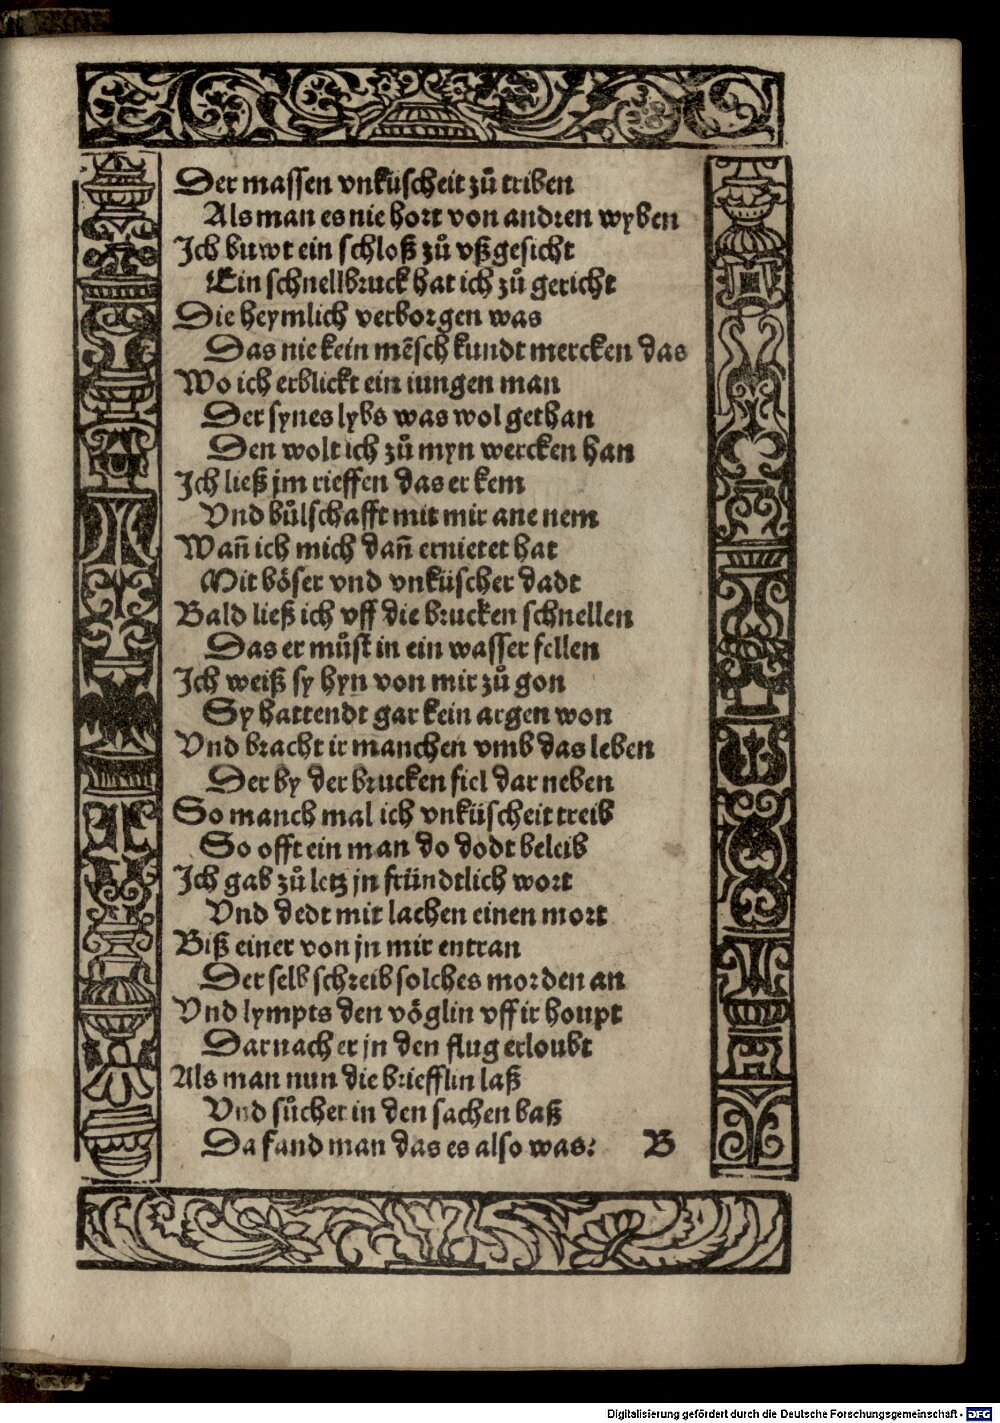 Der massen vnküscheit zů triben
Als man es nie hort von andren wyben
Ich buwt ein schloß zů vßgesicht
Ein schnellbruck hat ich zů gericht
Die heymlich verborgen was
Das nie kein mēsch kundt mercken das
Wo ich erblickt ein iungen man
Der synes lybs was wol gethan
Den wolt ich zů myn wercken han
Ich ließ jm rieffen das er kem
Vnd bůlschafft mit mir ane nem
Wañ ich mich dañ ernietet hat
Mit böser vnd vnküscher dadt
Bald ließ ich vff die brucken schnellen
Das er můst in ein wasser fellen
Ich weiß sy hyn von mir zů gon
Sy hattendt gar kein argen won
Vnd bracht ir manchen vmb das leben
Der by der brucken fiel dar neben
So manch mal ich vnküscheit treib
So offt ein man do dodt beleib
Ich gab zů letz jn fründtlich wort
Vnd dedt mit lachen einen mort
Biß einer von jn mir entran
Der selb schreib solches morden an
Vnd lympts den vöglin vff ir houpt
Darnach er jn den flug erloubt
Als man nun die briefflin laß
Vnd sůchet in den sachen baß
Da fand man das es also was: B
Digitalisierung gefördert durch die Deutsche Forschungsgemeinschaft - DFG